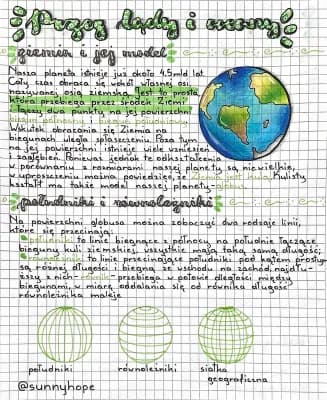 Przez lądy i morza
ziemia i jej model
Nasza planeta istnieje już około 4.5 mld lat.
Cały czas obraca się wokół własnej osi,
nazywanej osią ziemską. Jest to prosta,
która przebiega przez środek Ziemi
i łączy dwa punkty na jej powierzchni
biegun północny i biegun południowy.
Wskutek obracania się Ziemia na
biegunach uległa spłaszczeniu. Poza tym,
na jej powierzchni istnieje wiele wzniesień
i zagłębień. Ponieważ jednak te odkształcenia
w porównaniu z rozmiarami naszej planety są niewielkie,
w uproszczeniu można powiedzieć, że Kulisty
kształt ma także model naszej planety-globus
południki i równoleżniki
Na powierzchni globusa można zobaczyć dwa rodzaje linii,
które się przecinają:
południki to linie biegnące z północy na południe łączące
bieguny kuli ziemskiej, wszystkie mają taką samą długość;
równoleżniki to linie przecinające południki pod kątem prostym
są różnej długości i biegną ze wschodu na zachód, najdłu-
ższy z nich-równik-przebiega w połowie długości między
biegunami, w miarę oddalania się od równika długość
równoleżnika maleje.
południki równoleżniki siatka
geograficzna
@sunnyhope